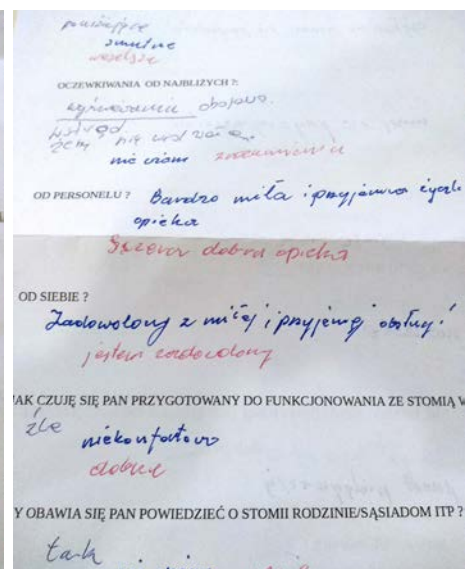 poniżające
smutne
weselsze
OCZEWKIWANIA OD NAJBLIŻYCH ?:
wstyd
nie wiem zrozumienia
OD PERSONELU ? Bardzo miła i przyjemna
opieka
Szczera dobra opieka
OD SIEBIE ?
Zadowolony z miłej i przyjemnej obsługi!
jestem zadowolony
JAK CZUJĘ SIĘ PAN PRZYGOTOWANY DO FUNKCJONOWANIA ZE STOMIĄ W
źle
niekomfortowo
dobrze
Y OBAWIA SIĘ PAN POWIEDZIEĆ O STOMII RODZINIE/SĄSIADOM ITP ?
tak